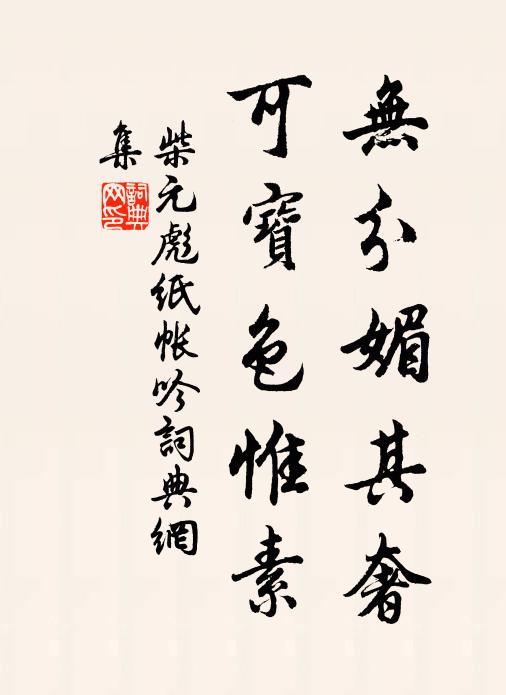 無分媚其奢
可寶色惟素
柴元彪紙帳吟詞典網
集
詞典网印